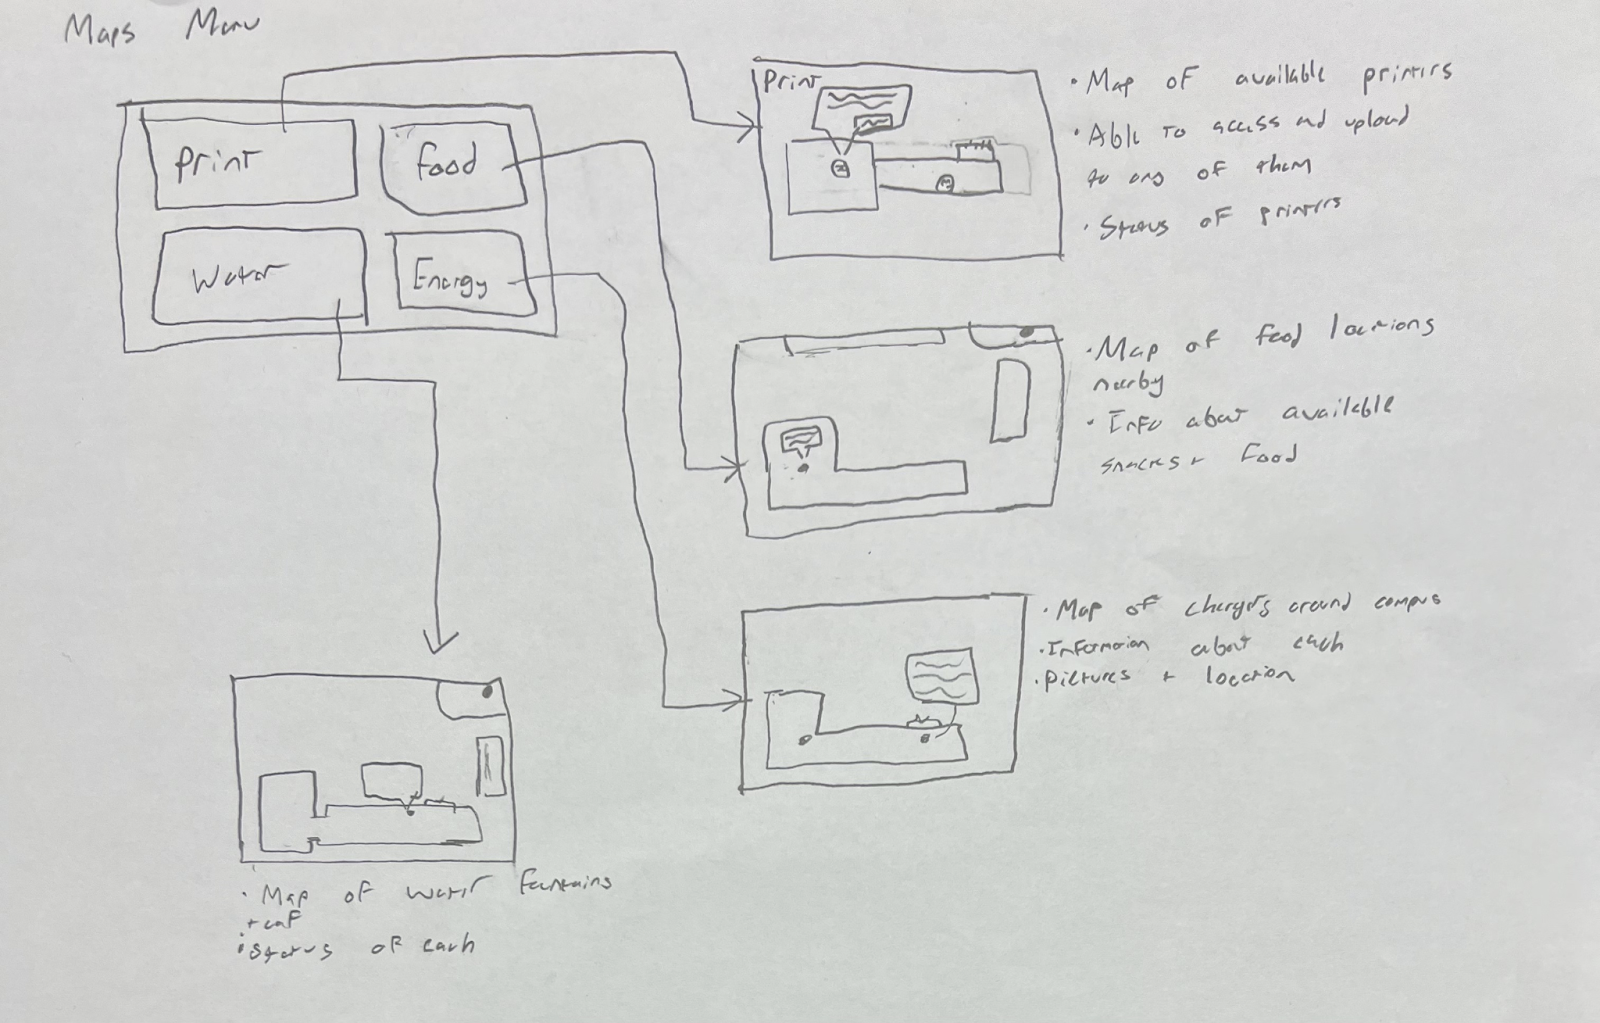 Maps Menu
Print
Food
Water
Energy
Print
• Map of available printers
• Able to access and upload
to any of them
• Status of printers
• Map of food locations
nearby
• Info about available
snacks + Food
• Map of chargers around campus
• Information about each
• Pictures + location
• Map of water fountains
• Status of each